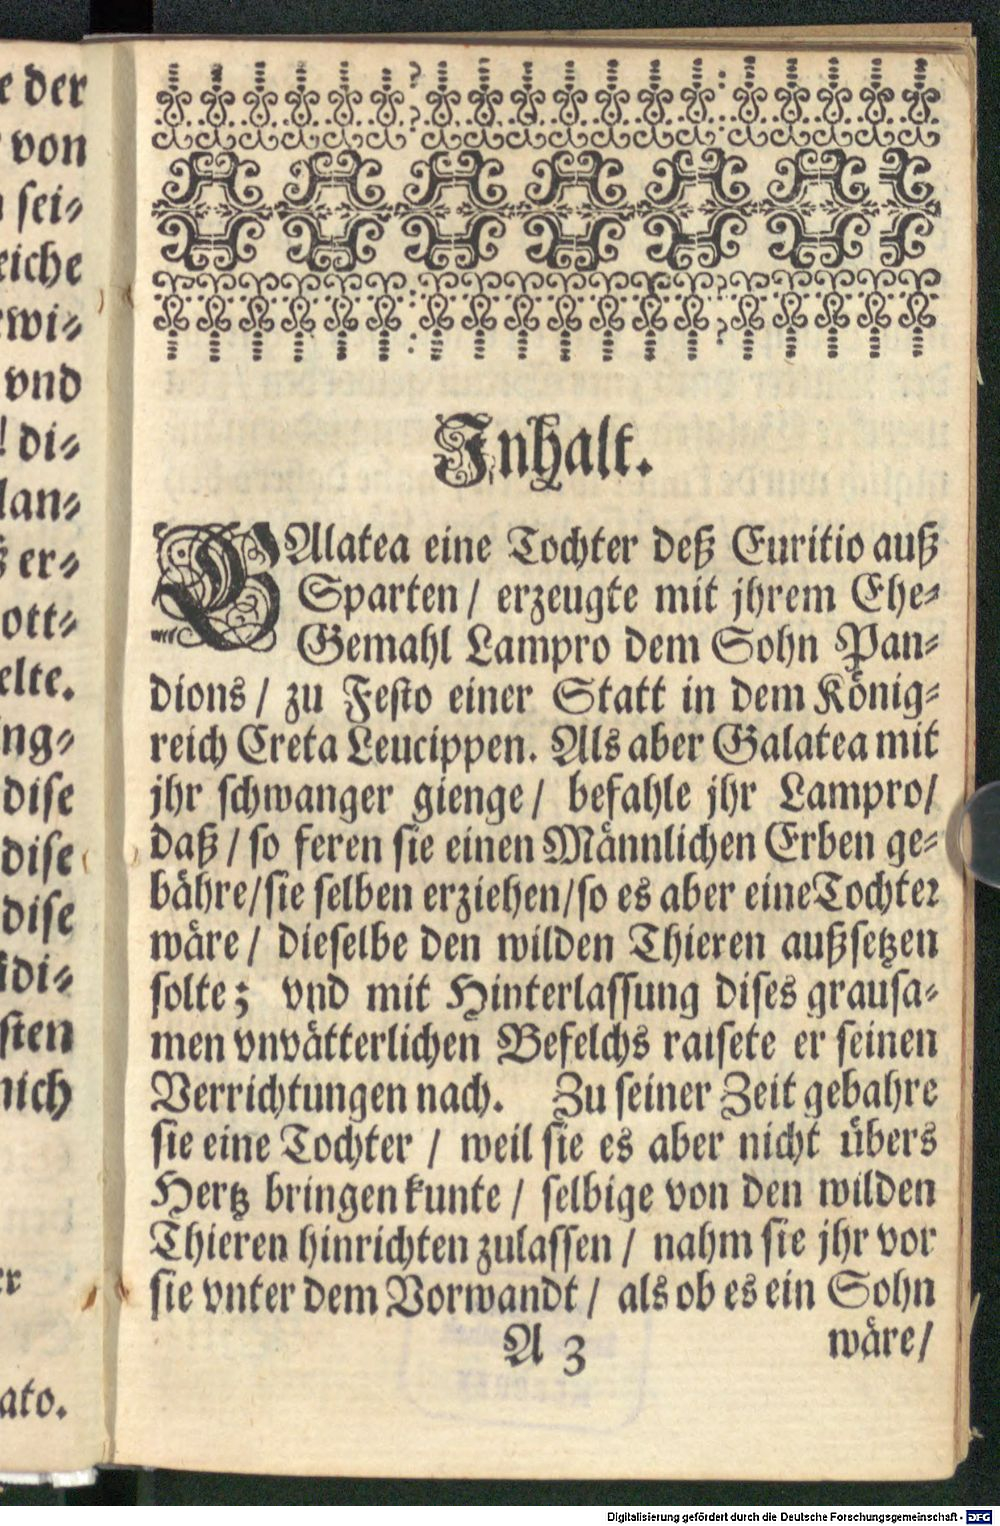 e der
von
sei⸗
eiche
wi⸗
vnd
! di⸗
lan⸗
ß er⸗
ott⸗
elte.
ng⸗
dise
dise
dise
di⸗
sten
nich
er
ato.
Inhalt.
GAlatea eine Tochter deß Euritio auß
Sparten / erzeugte mit jhrem Ehe⸗
Gemahl Lampro dem Sohn Pan⸗
dions / zu Festo einer Statt in dem König⸗
reich Creta Leucippen. Als aber Galatea mit
jhr schwanger gienge / befahle jhr Lampro/
daß / so feren sie einen Männlichen Erben ge⸗
bähre/sie selben erziehen/so es aber eine Tochter
wäre / dieselbe den wilden Thieren außsetzen
solte; vnd mit Hinterlassung dises grausa⸗
men vnvätterlichen Befelchs raisete er seinen
Verrichtungen nach. Zu seiner Zeit gebahre
sie eine Tochter / weil sie es aber nicht übers
Hertz bringen kunte / selbige von den wilden
Thieren hinrichten zulassen / nahm sie jhr vor
sie vnter dem Vorwandt / als ob es ein Sohn
A 3 wäre/
Digitalisierung gefördert durch die Deutsche Forschungsgemeinschaft - DFG